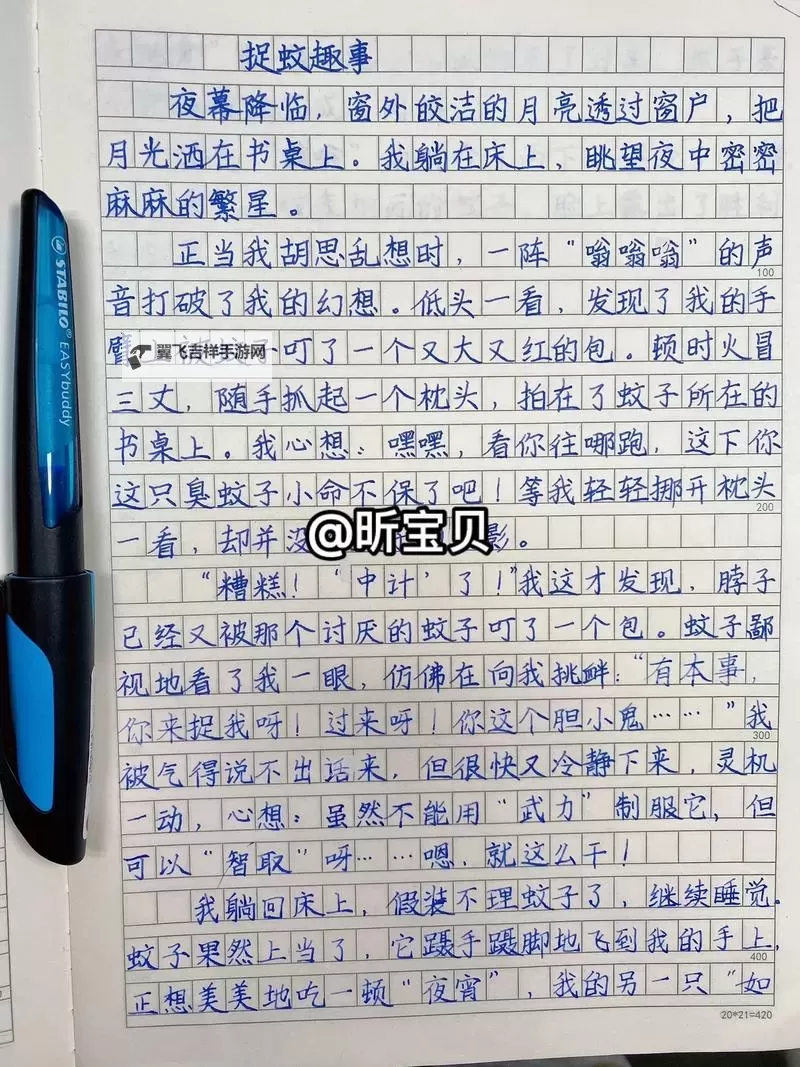 捉蚊趣事
夜幕降临，窗外皎洁的月亮透过窗户，把
月光洒在书桌上。我躺在床上，眺望夜中密密
麻麻的繁星。
正当我胡思乱想时，一阵“嗡嗡嗡”的声
100
音打破了我的幻想。低头一看，发现了我的手
被 叮了一个又大又红的包。顿时火冒
翼飞吉祥手游网
三丈，随手抓起一个枕头，拍在了蚊子所在的
书桌上。我心想：嘿嘿，看你往哪跑，这下你
这只臭蚊子小命不保了吧！等我轻轻挪开枕头
200
一看，却并没 影。
@昕宝贝
“糟糕！‘中计’了！”我这才发现，脖子
已经又被那个讨厌的蚊子叮了一个包。蚊子鄙
视地看了我一眼，仿佛在向我挑衅：“有本事，
你来捉我呀！过来呀！你这个胆小鬼……”我
300
被气得说不出话来，但很快又冷静下来，灵机
一动，心想：虽然不能用“武力”制服它，但
可以“智取”呀……嗯，就这么干！
我躺回床上，假装不理蚊子了，继续睡觉。
蚊子果然上当了，它蹑手蹑脚地飞到我的手上，
400
正想美美地吃一顿“夜宵”，我的另一只“如
20*21=420
STABILO
EASYbuddy